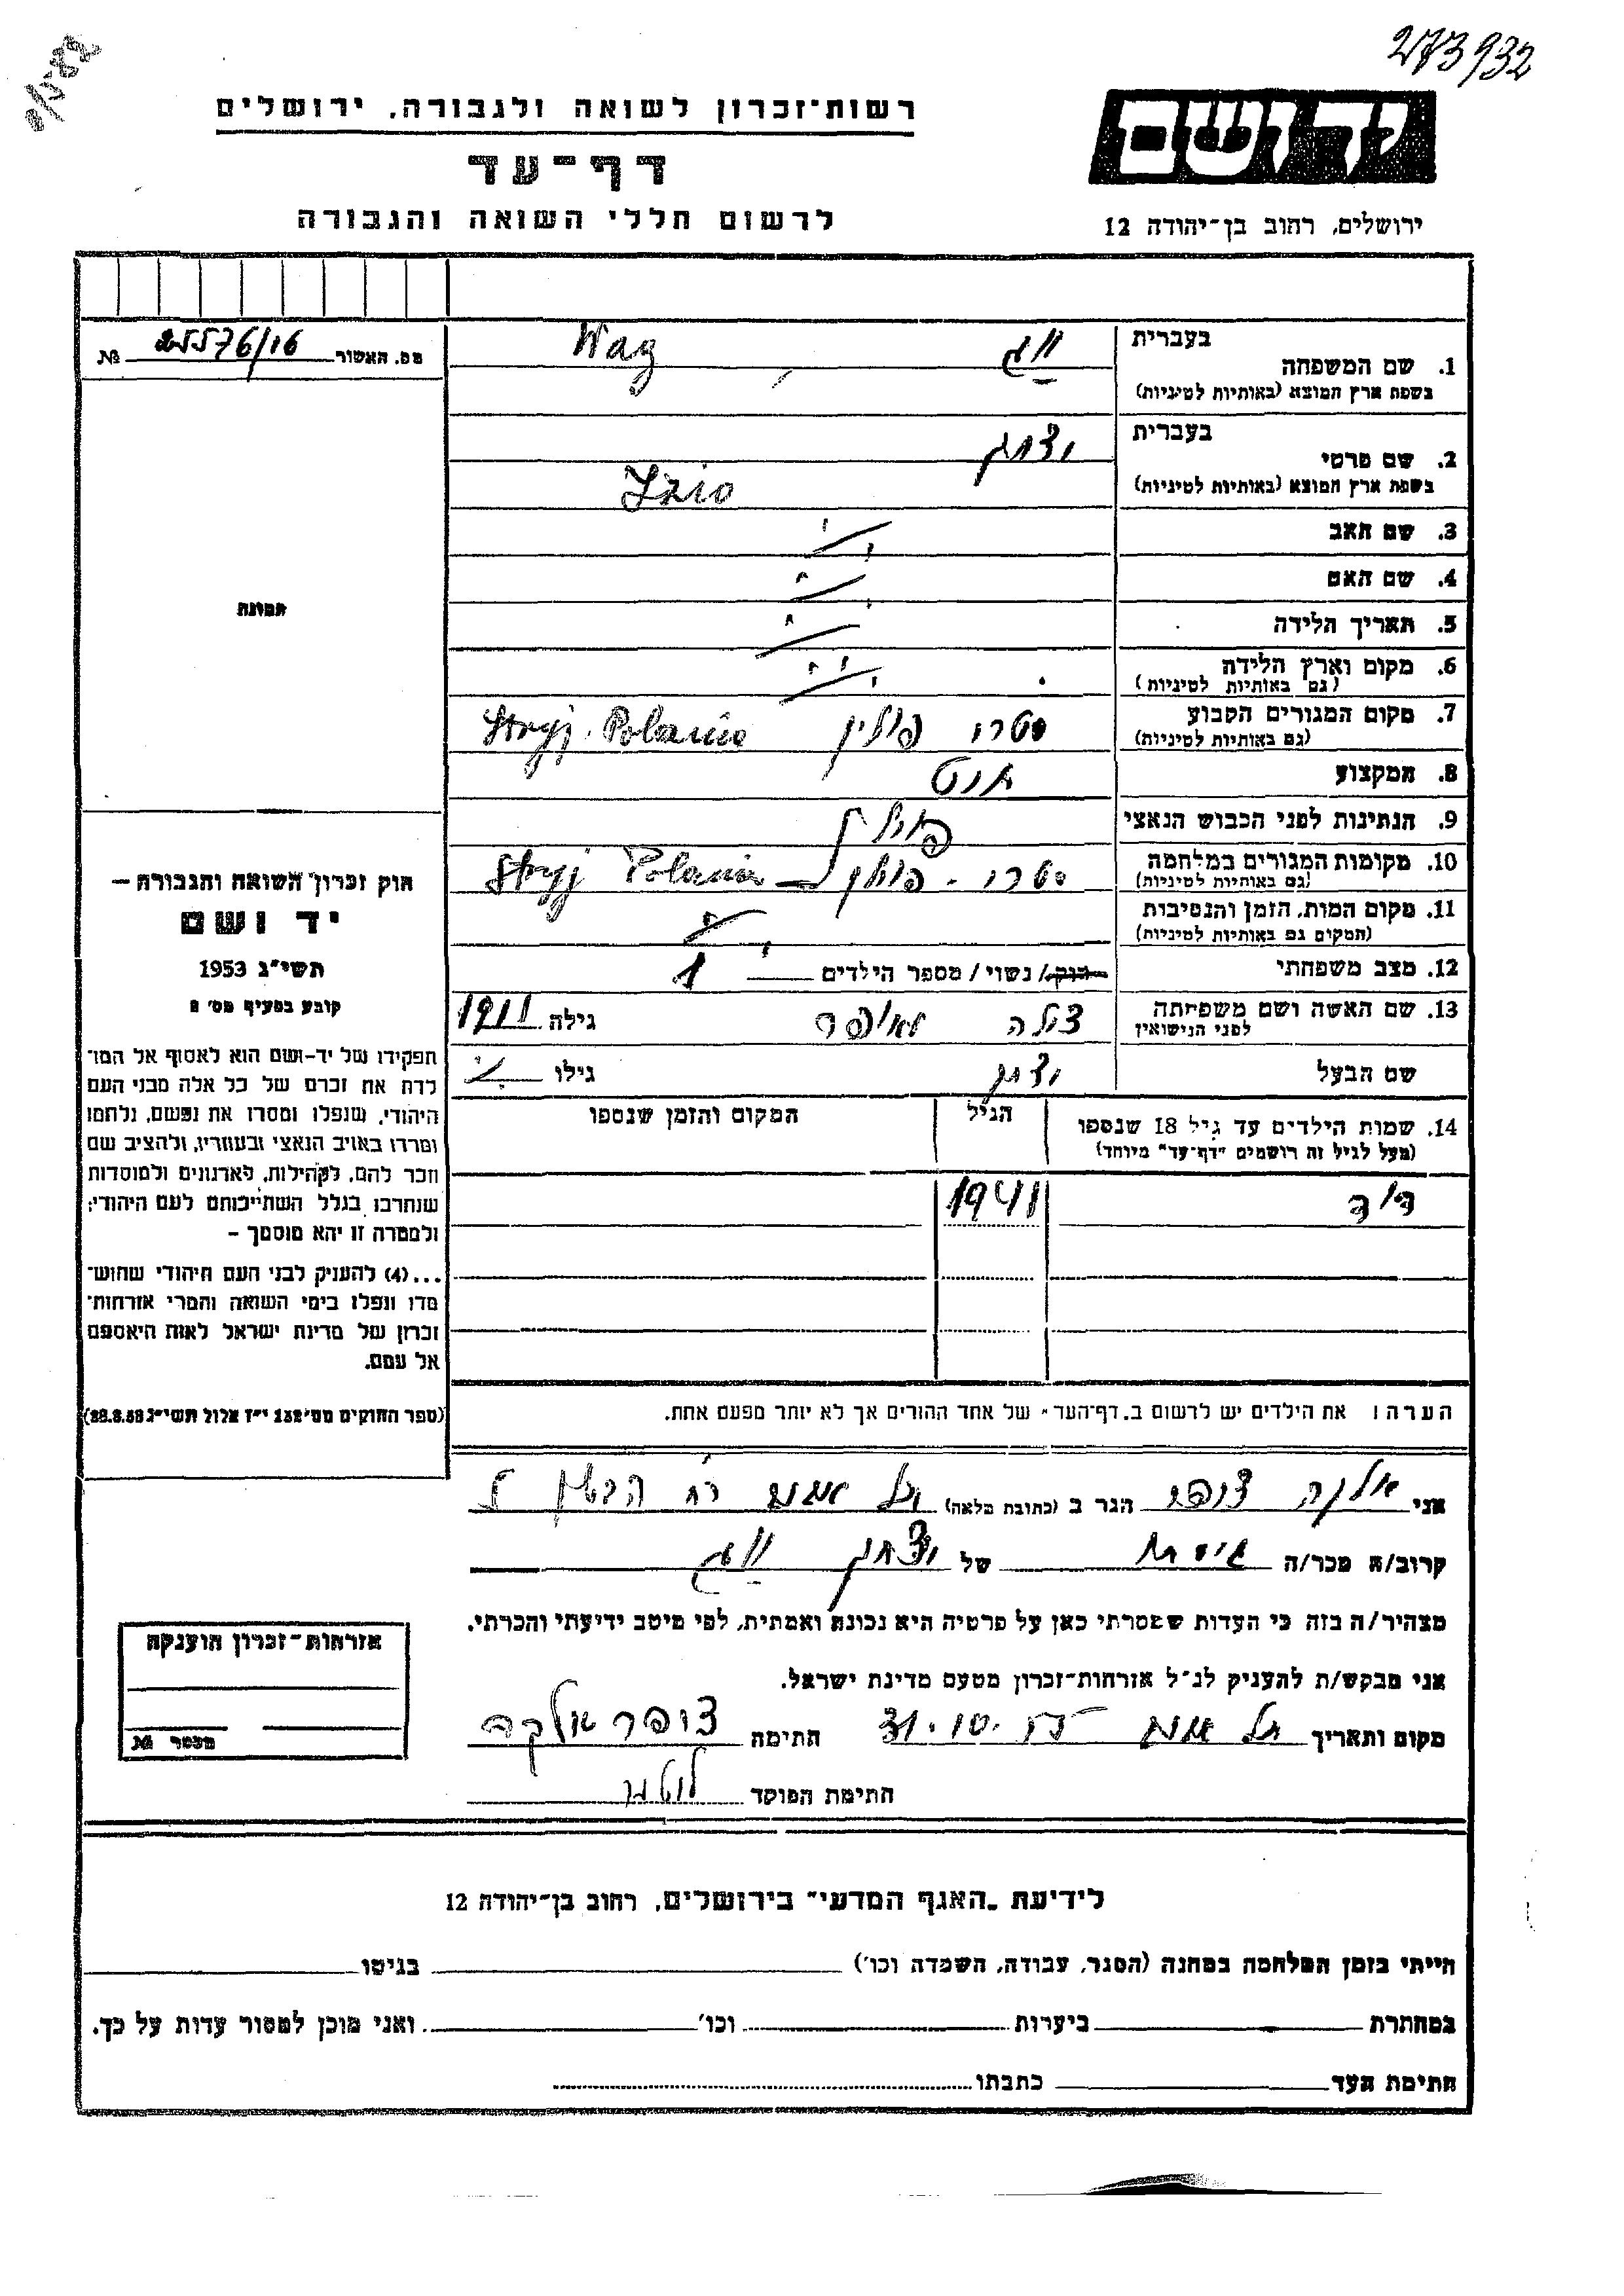 273932
רשות־זכרון לשואה ולגבורה, ירושלים
דף־עד
לרשום חללי השואה והגבורה
יד ושם
ירושלים, רחוב בן־יהודה 12
מס. האשור 25576/16 №
1. שם המשפחה
בעברית ווג
בשפת ארץ המוצא (באותיות לטיניות) Wag
2. שם פרטי
בעברית יצחק
בשפת ארץ המוצא (באותיות לטיניות) Izio
3. שם האב
4. שם האם
5. תאריך הלידה
6. מקום וארץ הלידה
(גם באותיות לטיניות)
7. מקום המגורים הקבוע סטרי פולין Stryj
(גם באותיות לטיניות)
8. המקצוע
9. הנתינות לפני הכבוש הנאצי
10. מקומות המגורים במלחמה סטרי - פולין Stryj
(גם באותיות לטיניות)
11. מקום המות, הזמן והנסיבות
(המקום גם באותיות לטיניות)
12. מצב משפחתי רוק/ נשוי/ מספר הילדים 1
13. שם האשה ושם משפחתה צילה גילה 1911
לפני הנישואין
שם הבעל יצחק גילו
14. שמות הילדים עד גיל 18 שנספו הגיל המקום והזמן שנספו
(מעל לגיל זה רושמים "דף־עד" מיוחד)
דוד 1941
הערה: את הילדים יש לרשום ב„דף־העד" של אחד ההורים אך לא יותר מפעם אחת.
תמונה
חוק זכרון השואה והגבורה —
יד ושם
תשי"ג 1953
קובע בסעיף מס' 2
תפקידו של יד-ושם הוא לאסוף אל המו־
לדת את זכרם של כל אלה מבני העם
היהודי, שנפלו ומסרו את נפשם, נלחמו
ומרדו באויב הנאצי ובעוזריו, ולהציב שם
וזכר להם, לקהילות, לארגונים ולמוסדות
שנחרבו בגלל השתייכותם לעם היהודי;
ולמטרה זו יהא מוסמך —
...(4) להעניק לבני העם היהודי שהוש־
מדו ונפלו בימי השואה והמרי אזרחות־
זכרון של מדינת ישראל לאות היאספם
אל עמם.
(ספר החוקים מס' 132 י"ז אלול תשי"ג 28.8.53)
אני אלקה צופר הגר ב (כתובת מלאה) תל אביב רח
קרוב/ה מכר/ה גיסתו של יצחק ווג
מצהיר/ה בזה כי העדות שמסרתי כאן על פרטיה היא נכונה ואמתית, לפי מיטב ידיעתי והכרתי.
אני מבקש/ת להעניק לנ"ל אזרחות־זכרון מטעם מדינת ישראל.
מקום ותאריך תל אביב 31.10.55 חתימה צופר אלקה
חתימת הפוקד
אזרחות־זכרון הוענקה
מכסר №
לידיעת „האגף המדעי" בירושלים, רחוב בן־יהודה 12
הייתי בזמן המלחמה במחנה (הסגר, עבודה, השמדה וכו') בגיטו
במחתרת ביערות וכו' ואני מוכן למסור עדות על כך.
חתימת העד כתבתו